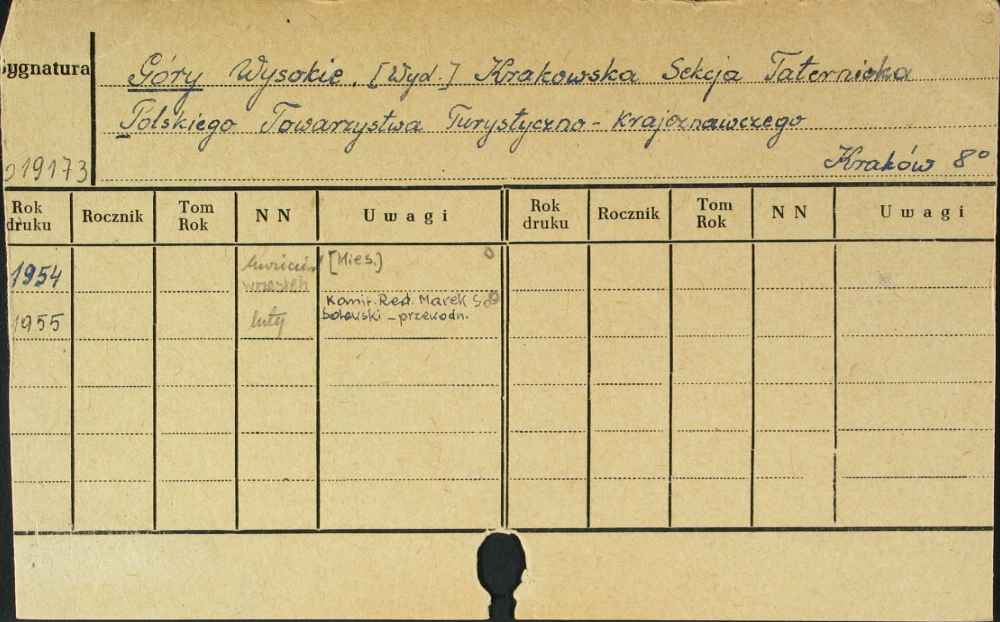 Sygnatura
Góry Wysokie, [Wyd.] Krakowska Sekcja Taternicka
Polskiego Towarzystwa Turystyczno-krajoznawczego
019173 Kraków 8°
Rok druku Rocznik Tom Rok NN Uwagi Rok druku Rocznik Tom Rok NN Uwagi
1954 [Mies.]
wrzesień
Komit. Red. Marek So
1955 luty bolewski - przewodn.